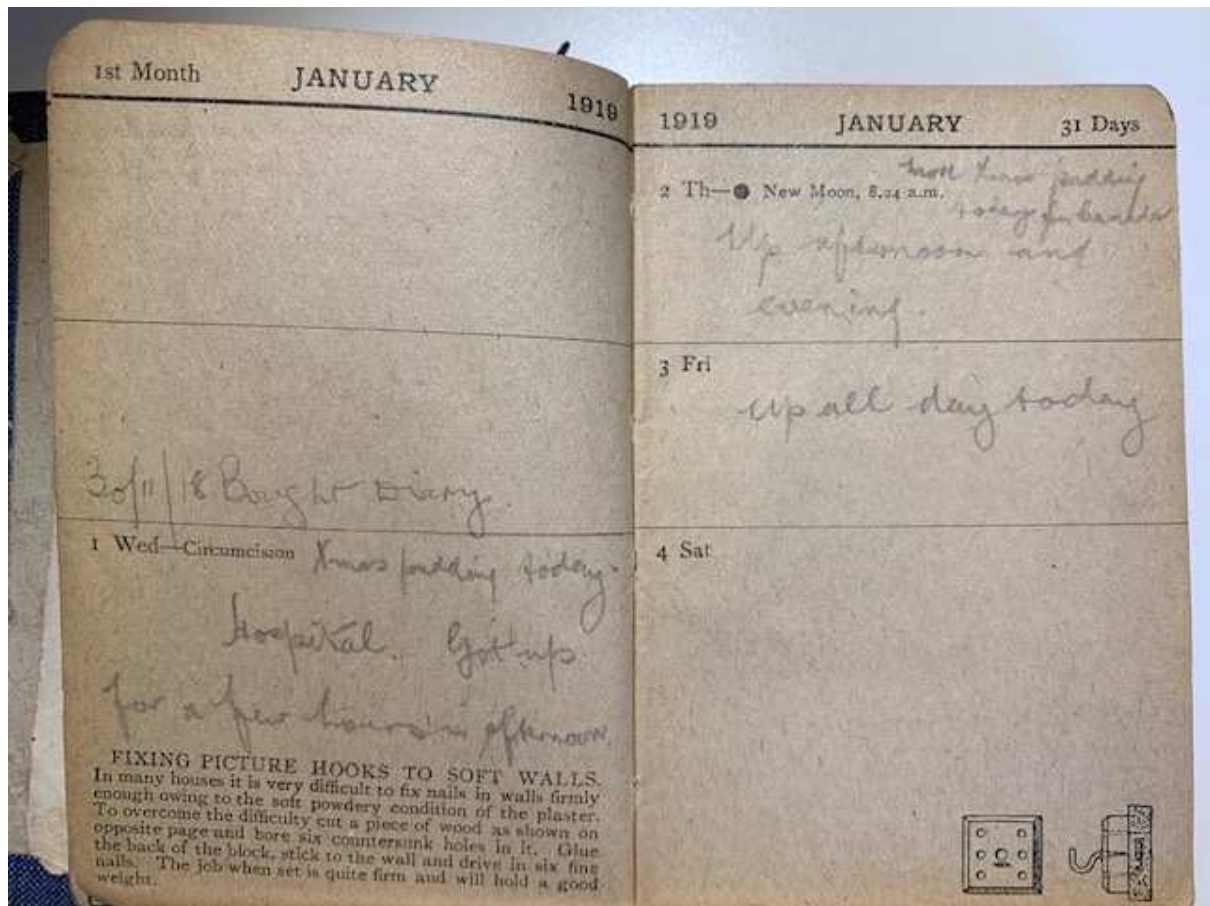 1st Month JANUARY 1919
30/11/18 Bought Diary.
1 Wed—Circumcision Xmas pudding today.
Hospital. Got up
for a few hours in afternoon.
FIXING PICTURE HOOKS TO SOFT WALLS.
In many houses it is very difficult to fix nails in walls firmly
enough owing to the soft powdery condition of the plaster.
To overcome the difficulty cut a piece of wood as shown on
opposite page and bore six countersunk holes in it. Glue
the back of the block, stick to the wall and drive in six fine
nails. The job when set is quite firm and will hold a good
weight.
1919 JANUARY 31 Days
Xmas pudding
2 Th—● New Moon, 8.24 a.m.
today
Up afternoon and
evening.
3 Fri
Up all day today
4 Sat